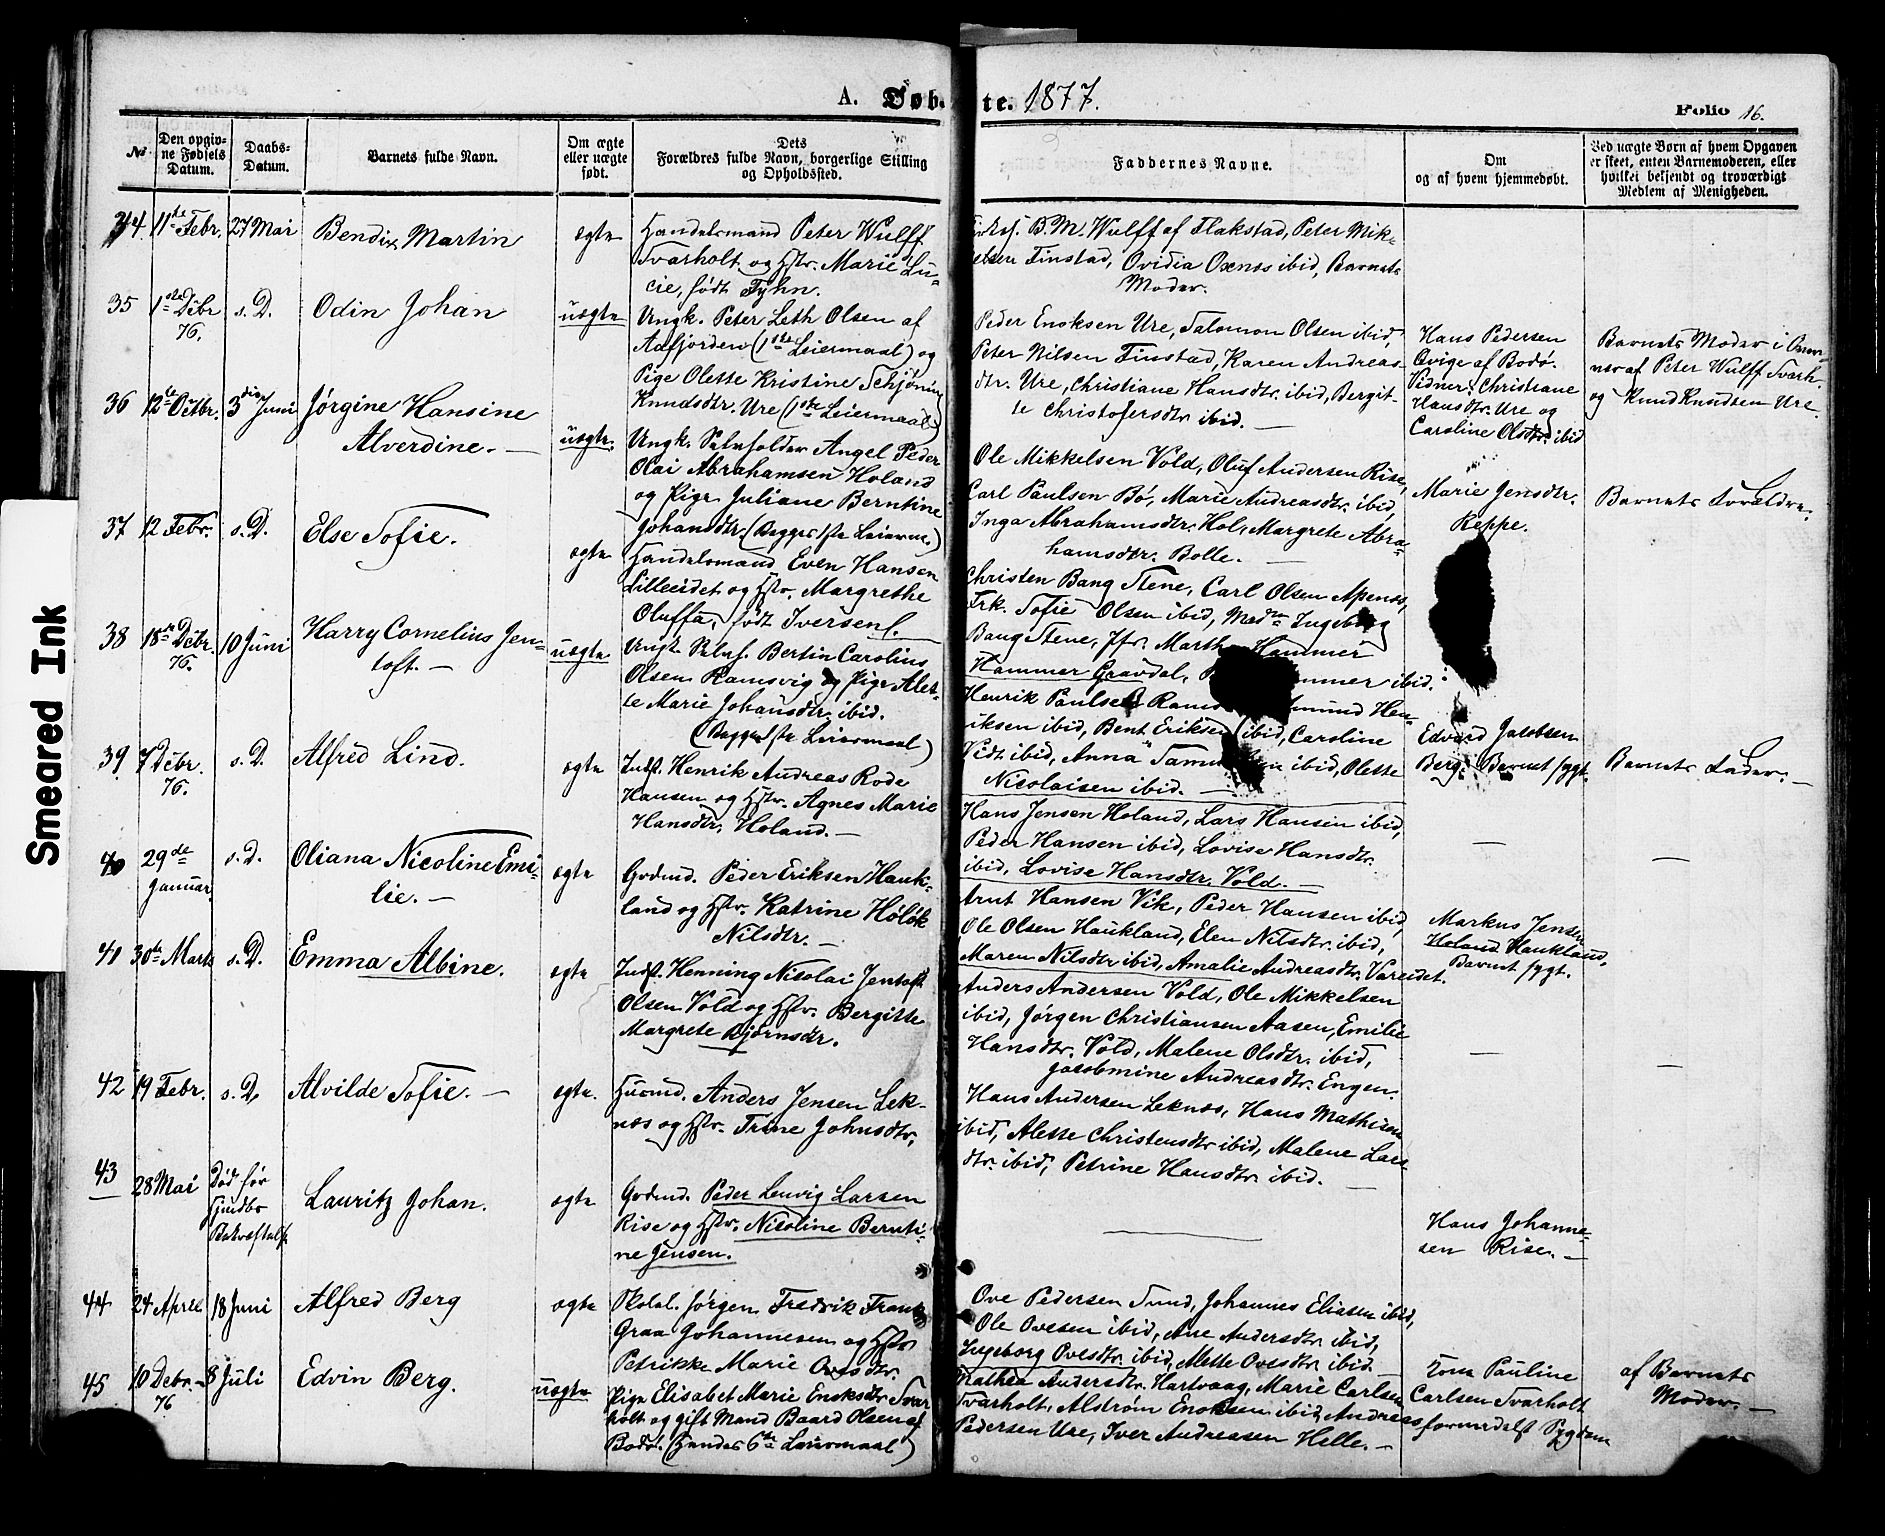 A. Døbte. 1877.
Folio 16.
Smeared Ink
№
Den opgivne Fødsels Datum.
Daabs-Datum.
Barnets fulde Navn.
Om ægte eller uægte født.
Dets Forældres fulde Navn, borgerlige Stilling og Opholdssted.
Faddernes Navne.
Om og af hvem hjemmedøbt.
Ved uægte Børn af hvem Opgaven er skeet, enten Barnemoderen, eller hvilket bekjendt og troværdigt Medlem af Menigheden.
34. 11te Febr. 27 Mai Bendix Martin ægte
Handelsmand Peter Wulff
Svarholt og Hstr. Marie Lu-
cie, født Fyhn.
B. M. Wulff af Flakstad, Peter Mik-
kelsen Finstad, Ovidia Oxnes ibid, Barnets
Moder.
35 1ste Debr 76. s. D. Odin Johan uægte
Ungk. Peter Leth Olsen af
(1ste Leiermaal) og
Pige Olette Kristine Schjøning
Knudsdtr. Ure (1ste Leiermaal)
Peder Enoksen Ure, Salomon Olsen ibid,
Peter Nilsen Finstad, Karen Andreas-
dtr. Ure, Christiane Hansdtr. ibid, Bergit-
te Christofersdtr. ibid. —
Hans Pedersen
Qvige af Bodø.
Vidner: Christiane
Hansdtr. Ure og
Caroline Olsdtr. ibid
Barnets Moder i Over-
vær af Peter Wulff Svarh.
og Knud Knudsen Ure.
36 12te Octbr. 3die Juni Jørgine Hansine
Alverdine. — uægte.
Ungk. Selvfolder Angel Peder
Olai Abrahamsen Holand
og Pige Juliane Berntine
Johansdtr. (Begges 1ste Leierm.)
Ole Mikkelsen Vold, Oluf Andersen Rise,
Carl Paulsen Bø, Marie Andreasdtr. ibid,
Inga Abrahamsdtr. Hol, Margrete Abra-
hamsdtr. Bolle. —
Marie Jensdtr.
Reppe.
Barnets Forældre.
37 12 Febr. s. D. Else Sofie. ægte
Handelsmand Even Hansen
Lilleeidet og Hstr. Margrethe
Oluffa, født Iversen.
Christen Bang Stene, Carl Olsen Apenes,
Frk. Sofie Olsen ibid, Madm Ingeborg
Bang Stene, Jfr. Marth Hammer
Hammer Gravdal, mmer ibid.
38 18de Debr. 76. 10 Juni Harry Cornelius Jen-
toft. — uægte
Ungk. Selvf. Bertin Carolius
Olsen Ramsvig og Pige Alet-
te Marie Johansdtr. ibid.
(Begges 1ste Leiermaal)
Henrik Paulsen mund Hen-
riksen ibid, Bent Eriksen ibid, Caroline
Vidt ibid, Anna ibid, Olette
Nicolaisen ibid. —
Edvard Jacobsen
Berg. Barnet sygt.
Barnets Fader. —
39 7 Debr. 76. s. D. Alfred Lind. ægte
Indst. Henrik Andreas Rode
Hansen og Hstr. Agnes Marie
Hansdtr. Holand. —
Hans Jensen Holand, Lars Hansen ibid,
Peder Hansen ibid, Lovise Hansdtr.
ibid, Lovise Hansdtr. Vold. —
40 29de Januar. s. D. Oliana Nicoline Emi-
lie. — ægte
Gdmd. Peder Eriksen Hauk-
land og Hstr. Katrine
Nilsdtr. —
Arnt Hansen Vik, Peder Hansen ibid,
Ole Olsen Haukland, Elen Nilsdtr. ibid,
Maren Nilsdtr ibid, Amalie Andreasdtr. Vareidet.
Markus Jensen
Holand Haukland.
Barnet sygt.
41 30te Marts s. D. Emma Albine. ægte
Indst. Henning Nicolai Jentoft
Olsen Vold og Hstr. Bergitte
Margrete Bjørnsdtr.
Anders Andersen Vold, Ole Mikkelsen
ibid, Jørgen Christiansen Aasen, Emilie
Hansdtr. Vold, Malene Olsdtr. ibid,
Jacobmine Andreasdtr. Engen.
42 19 Febr. s. D. Alvilde Sofie. — ægte.
Husmd. Anders Jensen Lek-
næs og Hstr. Trine Johnsdtr.
Hans Andersen Leknæs, Hans Mathisen
ibid, Alette Christensdtr ibid, Malene Lars-
dtr. ibid, Petrine Hansdtr. ibid. —
43 28 Mai Død før
Lauritz Johan. ægte
Gdmd. Peder Ludvig Larsen
Rise og Hstr. Nicoline Bernti-
ne Jensen.
Hans Johanne-
sen Rise. —
44 24 April 18 Juni Alfred Berg ægte
Skolel. Jørgen Fredrik Frantz
Graa Johannesen og Hstr
Petrikke Marie Ovesdtr.
Ove Pedersen Sund, Johannes Eliasen ibid,
Ole Ovesen ibid, Ane Andersdtr. ibid,
Ingeborg Ovesdtr. ibid, Mette Ovesdtr ibid.
45 10 Debr. 76 8 Juli Edvin Berg. uægte
Pige Elisabet Marie Enoksdtr Svar-
holt og gift Mand Baard Olsen af
Bodø. (Hendes 6te Leiermaal)
Mathea Andersdtr. Hartvaag, Marie Carlsen
Svarholt, Alstrøm Enoksen ibid, Andreas
Pedersen Ure, Iver Andreassen Helle. —
Kone Pauline
Carlsen Svarholt
formedelst Sygdom
af Barnets
Moder. —